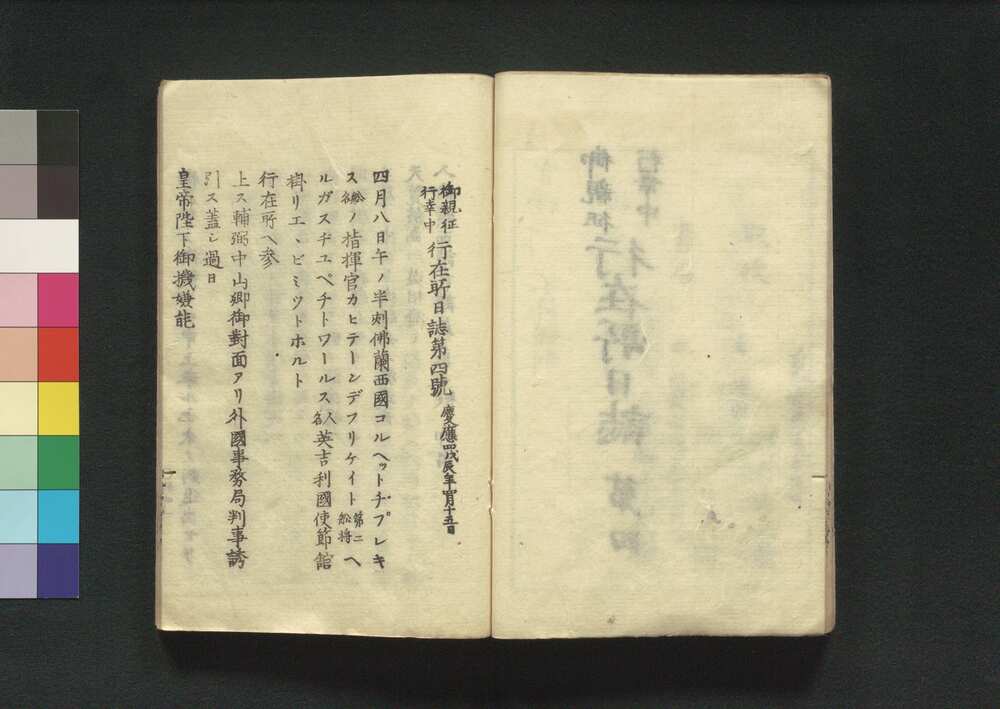 御親征行幸中 行在所日誌第四號 慶應四戊辰年四月十五日
四月八日午ノ半刻佛蘭西國コルヘットヂプレキ
ス船名ノ指揮官カヒテーンデフリケイト第二舩将ヘ
ルガスヂユペチトワールス人名英吉利國使節館
掛リエ、ビミツトホルト
行在所ヘ参
上ス輔弼中山卿御對面アリ外國事務局判事誘
引ス蓋シ過日
皇帝陛下御機嫌能